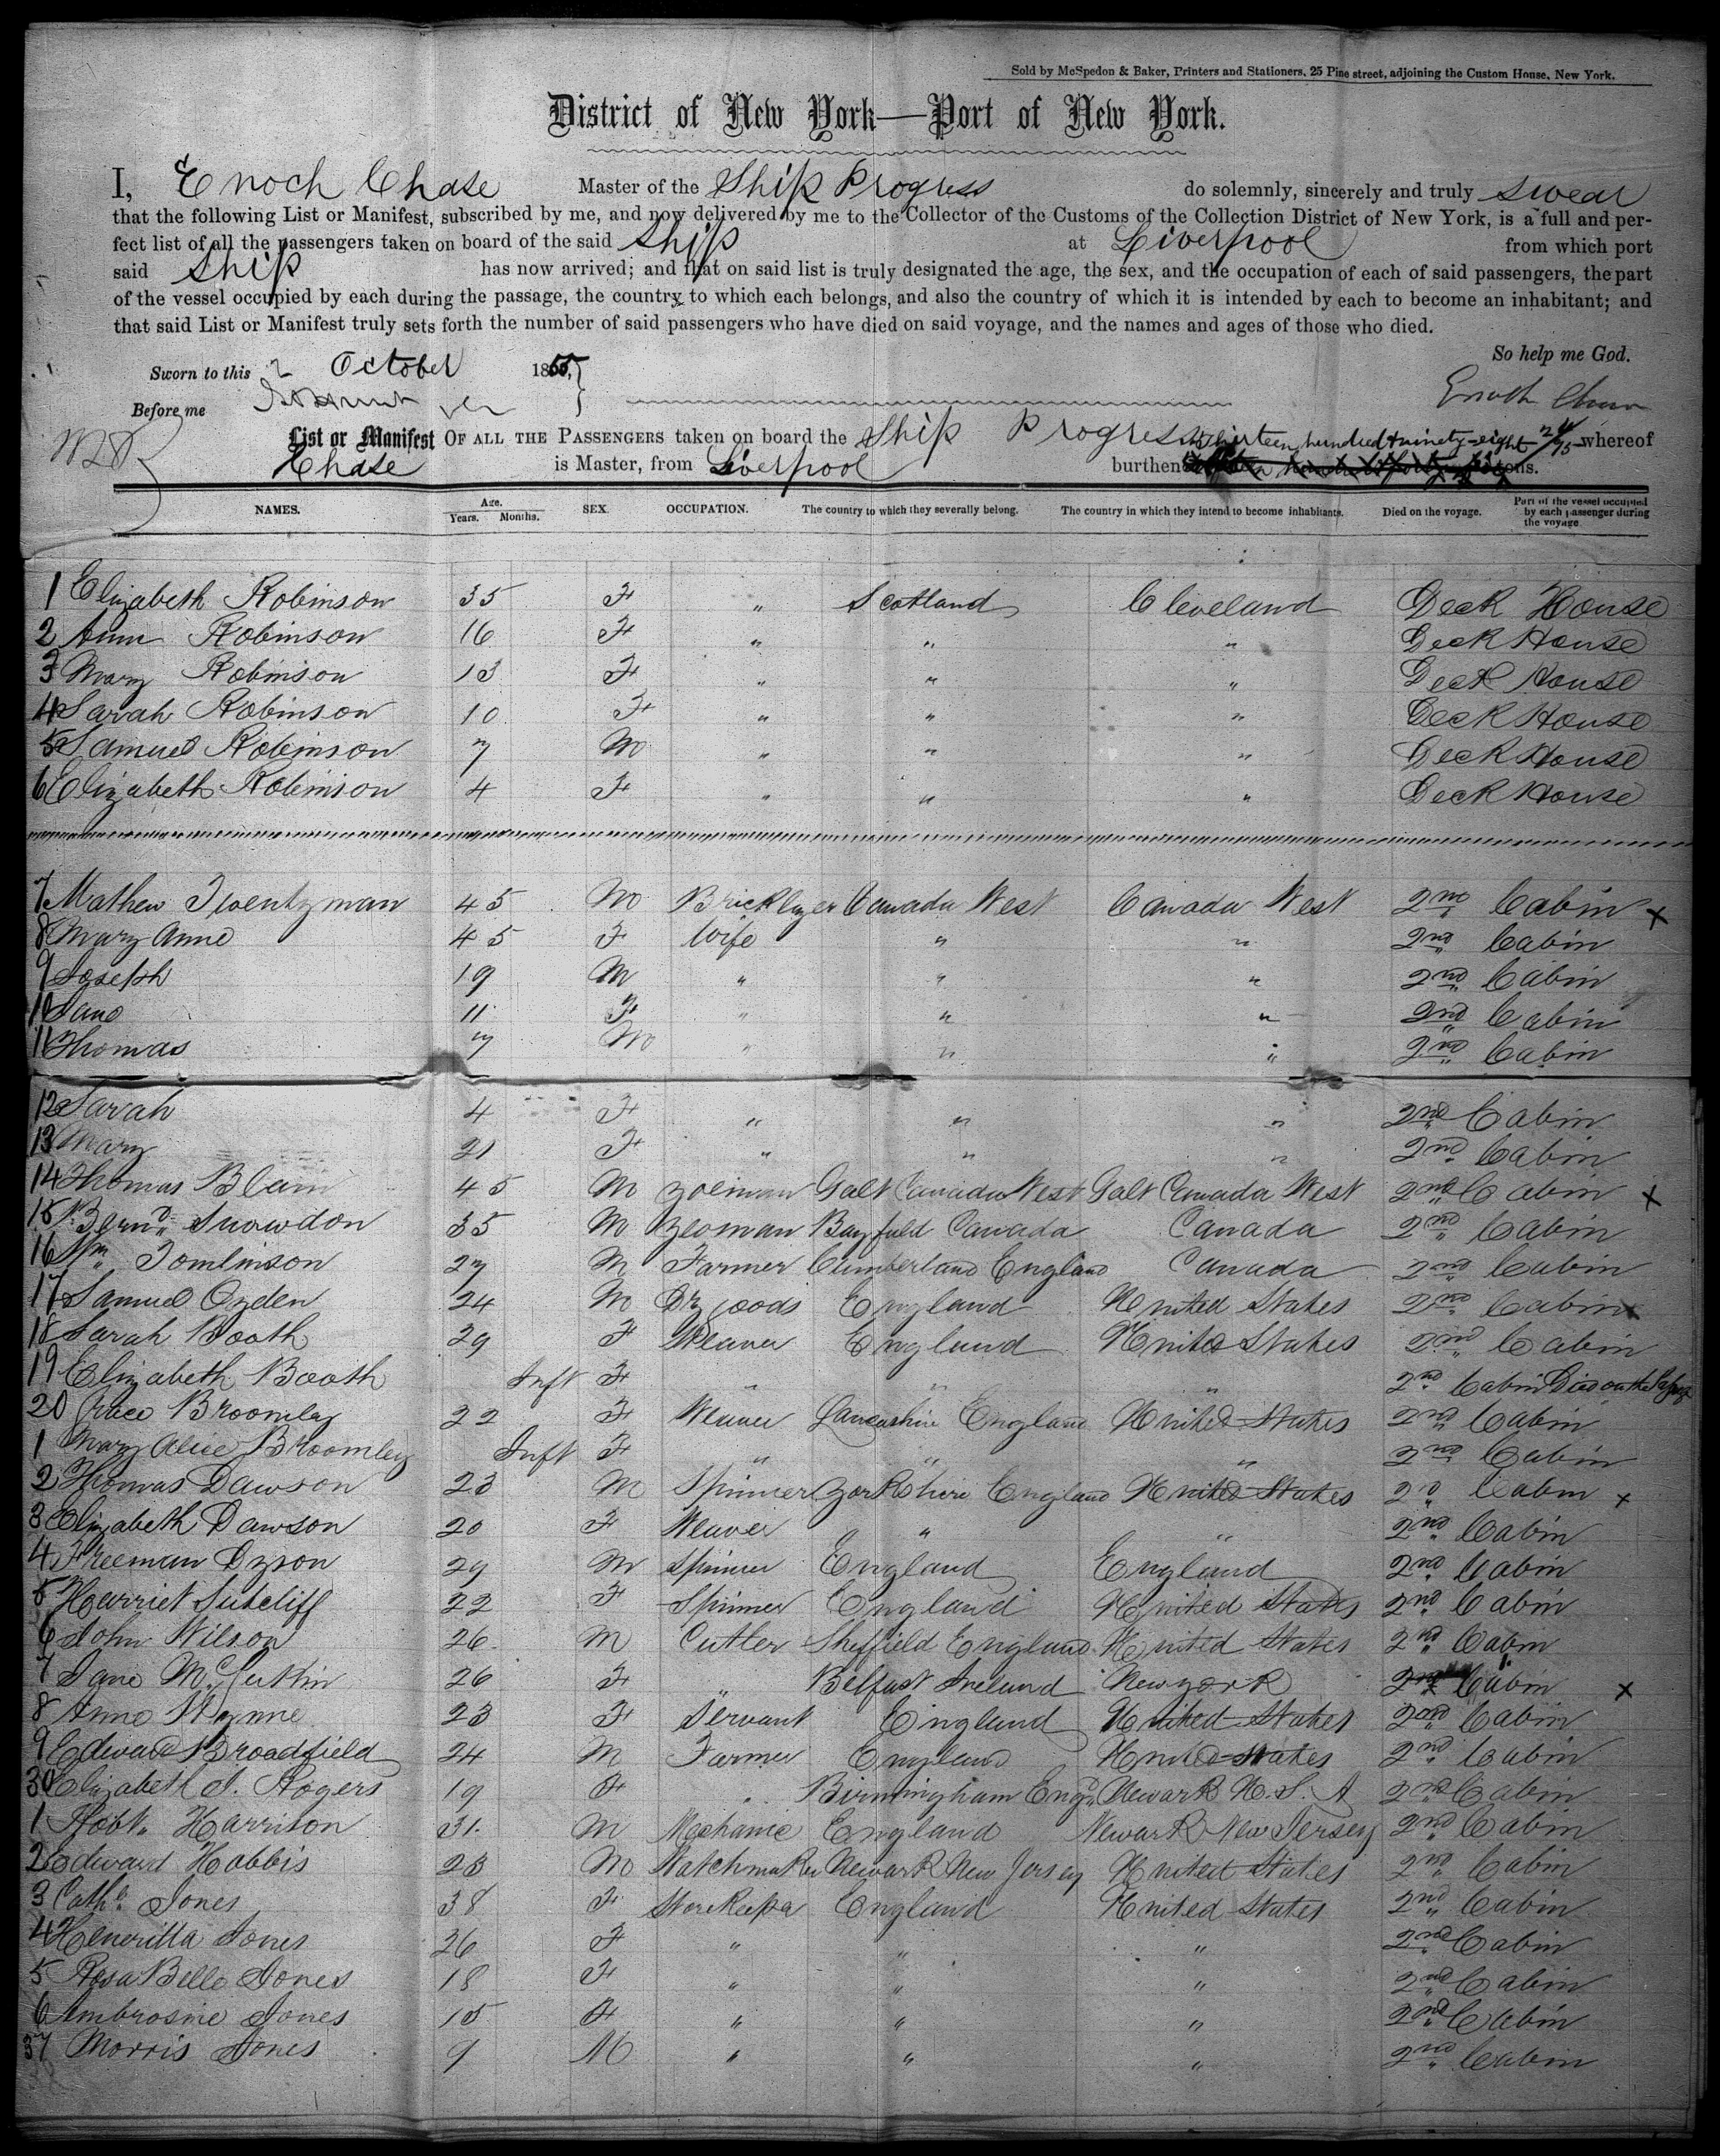 Sold by McSpedon & Baker, Printers and Stationers, 25 Pine street, adjoining the Custom House, New York.
District of New York—Port of New York.
I, Enoch Chase Master of the Ship Progress do solemnly, sincerely and truly swear
that the following List or Manifest, subscribed by me, and now delivered by me to the Collector of the Customs of the Collection District of New York, is a full and per-
fect list of all the passengers taken on board of the said Ship at Liverpool from which port
said Ship has now arrived; and that on said list is truly designated the age, the sex, and the occupation of each of said passengers, the part
of the vessel occupied by each during the passage, the country to which each belongs, and also the country of which it is intended by each to become an inhabitant; and
that said List or Manifest truly sets forth the number of said passengers who have died on said voyage, and the names and ages of those who died.
So help me God.
Sworn to this 2 October 1855,
Enoch Chase
Before me
List or Manifest OF ALL THE PASSENGERS taken on board the Ship Progress whereof
Chase is Master, from Liverpool burthen thirteen hundred & ninety-eight 24/95 tons.
NAMES. Age. Years. Months. SEX. OCCUPATION. The country to which they severally belong. The country in which they intend to become inhabitants. Died on the voyage. Part of the vessel occupied by each passenger during the voyage
1 Elizabeth Robinson 35 F " Scotland Cleveland Deck House
2 Ann Robinson 16 F " " " Deck House
3 Mary Robinson 13 F " " " Deck House
4 Sarah Robinson 10 F " " " Deck House
5 Samuel Robinson 7 M " " " Deck House
6 Elizabeth Robinson 4 F " " " Deck House
7 Mathew Twentyman 45 M Bricklayer Canada West Canada West 2nd Cabin x
8 Mary Anne 45 F Wife " " 2nd Cabin
9 Joseph 19 M " " " 2nd Cabin
10 Jane 11 F " " " 2nd Cabin
11 Thomas 7 M " " " 2nd Cabin
12 Sarah 4 F " " " 2nd Cabin
13 Mary 21 F " " " 2nd Cabin
14 Thomas Blain 45 M Yoeman Galt Canada West Galt Canada West 2nd Cabin x
15 Bernd Snowdon 35 M Yeoman Bayfield Canada Canada 2nd Cabin
16 Wm Tomlinson 27 M Farmer Cumberland England Canada 2nd Cabin
17 Samuel Ogden 24 M Dry goods England United States 2nd Cabin x
18 Sarah Booth 29 F Weaver England United States 2nd Cabin
19 Elizabeth Booth Inft F " " " 2nd Cabin Died on the Passage
20 Grace Broomley 22 F Weaver Lancashire England United States 2nd Cabin
1 Mary Alice Broomley Inft F " " " 2nd Cabin
2 Thomas Dawson 23 M Spinner Yorkshire England United States 2nd Cabin x
3 Elizabeth Dawson 20 F Weaver " " 2nd Cabin
4 Freeman Dyson 29 M Spinner England England 2nd Cabin
5 Harriet Sutcliff 22 F Spinner England United States 2nd Cabin
6 John Wilson 26 M Cutler Sheffield England United States 2nd Cabin
7 Jane 26 F " Belfast Ireland New york 2nd Cabin x
8 Anne Wynne 23 F Servant England United States 2nd Cabin
9 Edward Broadfield 24 M Farmer England United States 2nd Cabin
30 Elizabeth S. Rogers 19 F " Birmingham Engd Newark U.S. A 2nd Cabin
1 Robt. Harrison 31 M Mechanic England Newark New Jersey 2nd Cabin
2 Edward Hobbis 23 M Watchmaker Newark New Jersey United States 2nd Cabin
3 Cathe Jones 38 F Storekeeper England United States 2nd Cabin
4 Heneritta Jones 26 F " " " 2nd Cabin
5 Rosa Belle Jones 18 F " " " 2nd Cabin
6 Ambrosine Jones 15 F " " " 2nd Cabin
37 Morris Jones 9 M " " " 2nd Cabin